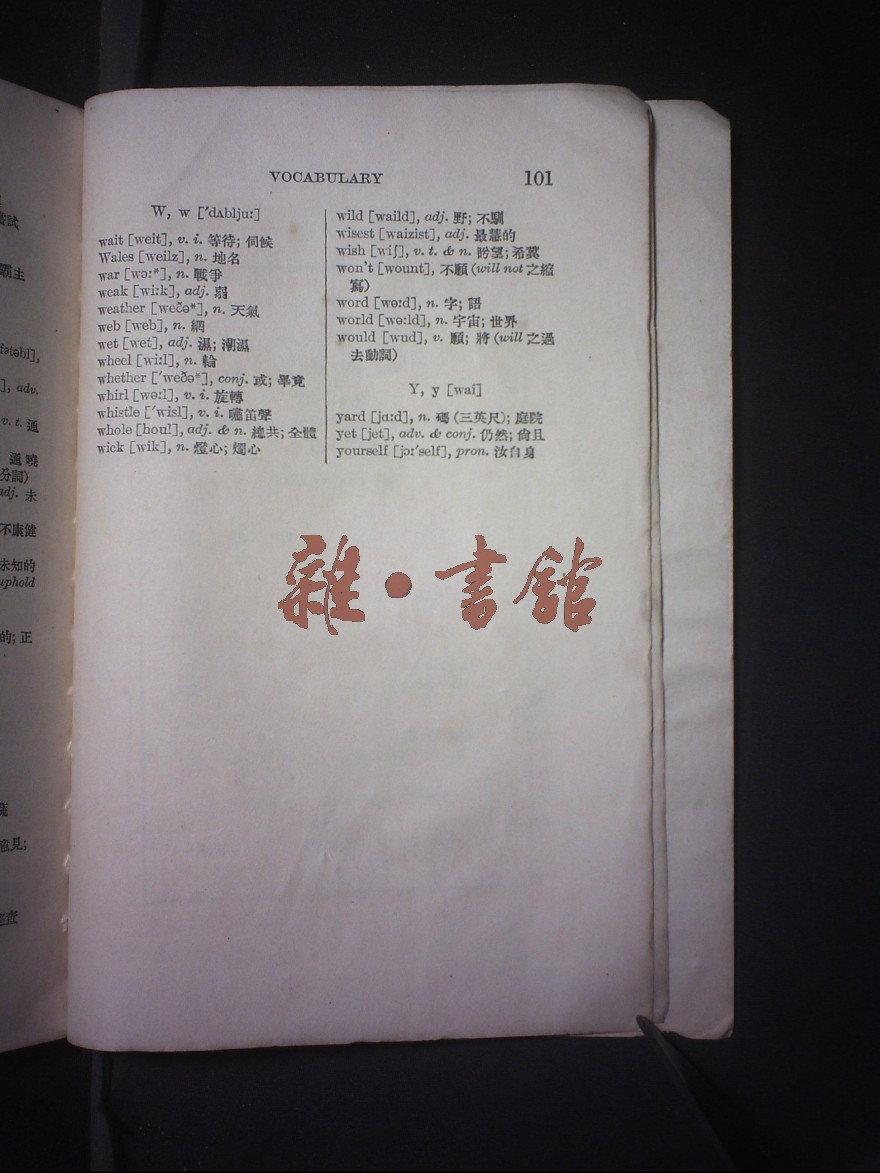 嘗試
霸主
fətəbl],
], adv.
v. t. 通
通曉
分詞)
adj. 未
不康健
未知的
uphold
的; 正
意見;
VOCABULARY 101
W, w ['dʌblju:]
wait [weit], v. i. 等待; 伺候
Wales [weilz], n. 地名
war [wɔ:*], n. 戰爭
weak [wi:k], adj. 弱
weather [weðə*], n. 天氣
web [web], n. 網
wet [wet], adj. 濕; 潮濕
wheel [wi:l], n. 輪
whether ['weðə*], conj. 或; 畢竟
whirl [wə:l], v. i. 旋轉
whistle ['wisl], v. i. 嘯笛聲
whole [houl], adj. & n. 總共; 全體
wick [wik], n. 燈心; 燭心
wild [waild], adj. 野; 不馴
wisest [waizist], adj. 最慧的
wish [wiʃ], v. t. & n. 盼望; 希冀
won't [wount], 不願 (will not 之縮
寫)
word [wə:d], n. 字; 語
world [wə:ld], n. 宇宙; 世界
would [wud], v. 願; 將 (will 之過
去動詞)
Y, y [wai]
yard [ja:d], n. 碼 (三英尺); 庭院
yet [jet], adv. & conj. 仍然; 尙且
yourself [jɔ:'self], pron. 汝自身
雜·書館